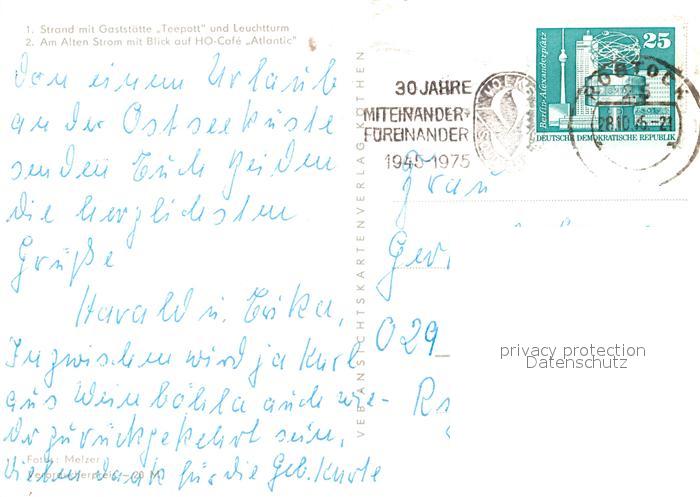 1. Strand mit Gaststätte „Teepott" und Leuchtturm
2. Am Alten Strom mit Blick auf HO-Café „Atlantic"
Von einem Urlaub
an der Ostseeküste
senden Euch beiden
die herzlichsten
Grüße
Harald u. Erika,
Inzwischen wird ja Kurt
aus Weinböhla auch wie-
der zurückgekehrt sein,
Vielen Dank für die Geb. Karte
Foto: Melzer
Verbraucherpreis -,20 M
VEB ANSICHTSKARTENVERLAG KÖTHEN
30 JAHRE
MITEINANDER-
FÜREINANDER
1945-1975
25
Berlin-Alexanderplatz
DEUTSCHE DEMOKRATISCHE REPUBLIK
ROSTOCK
28.10.75-21
Frau
Ger
029
privacy protection
Datenschutz